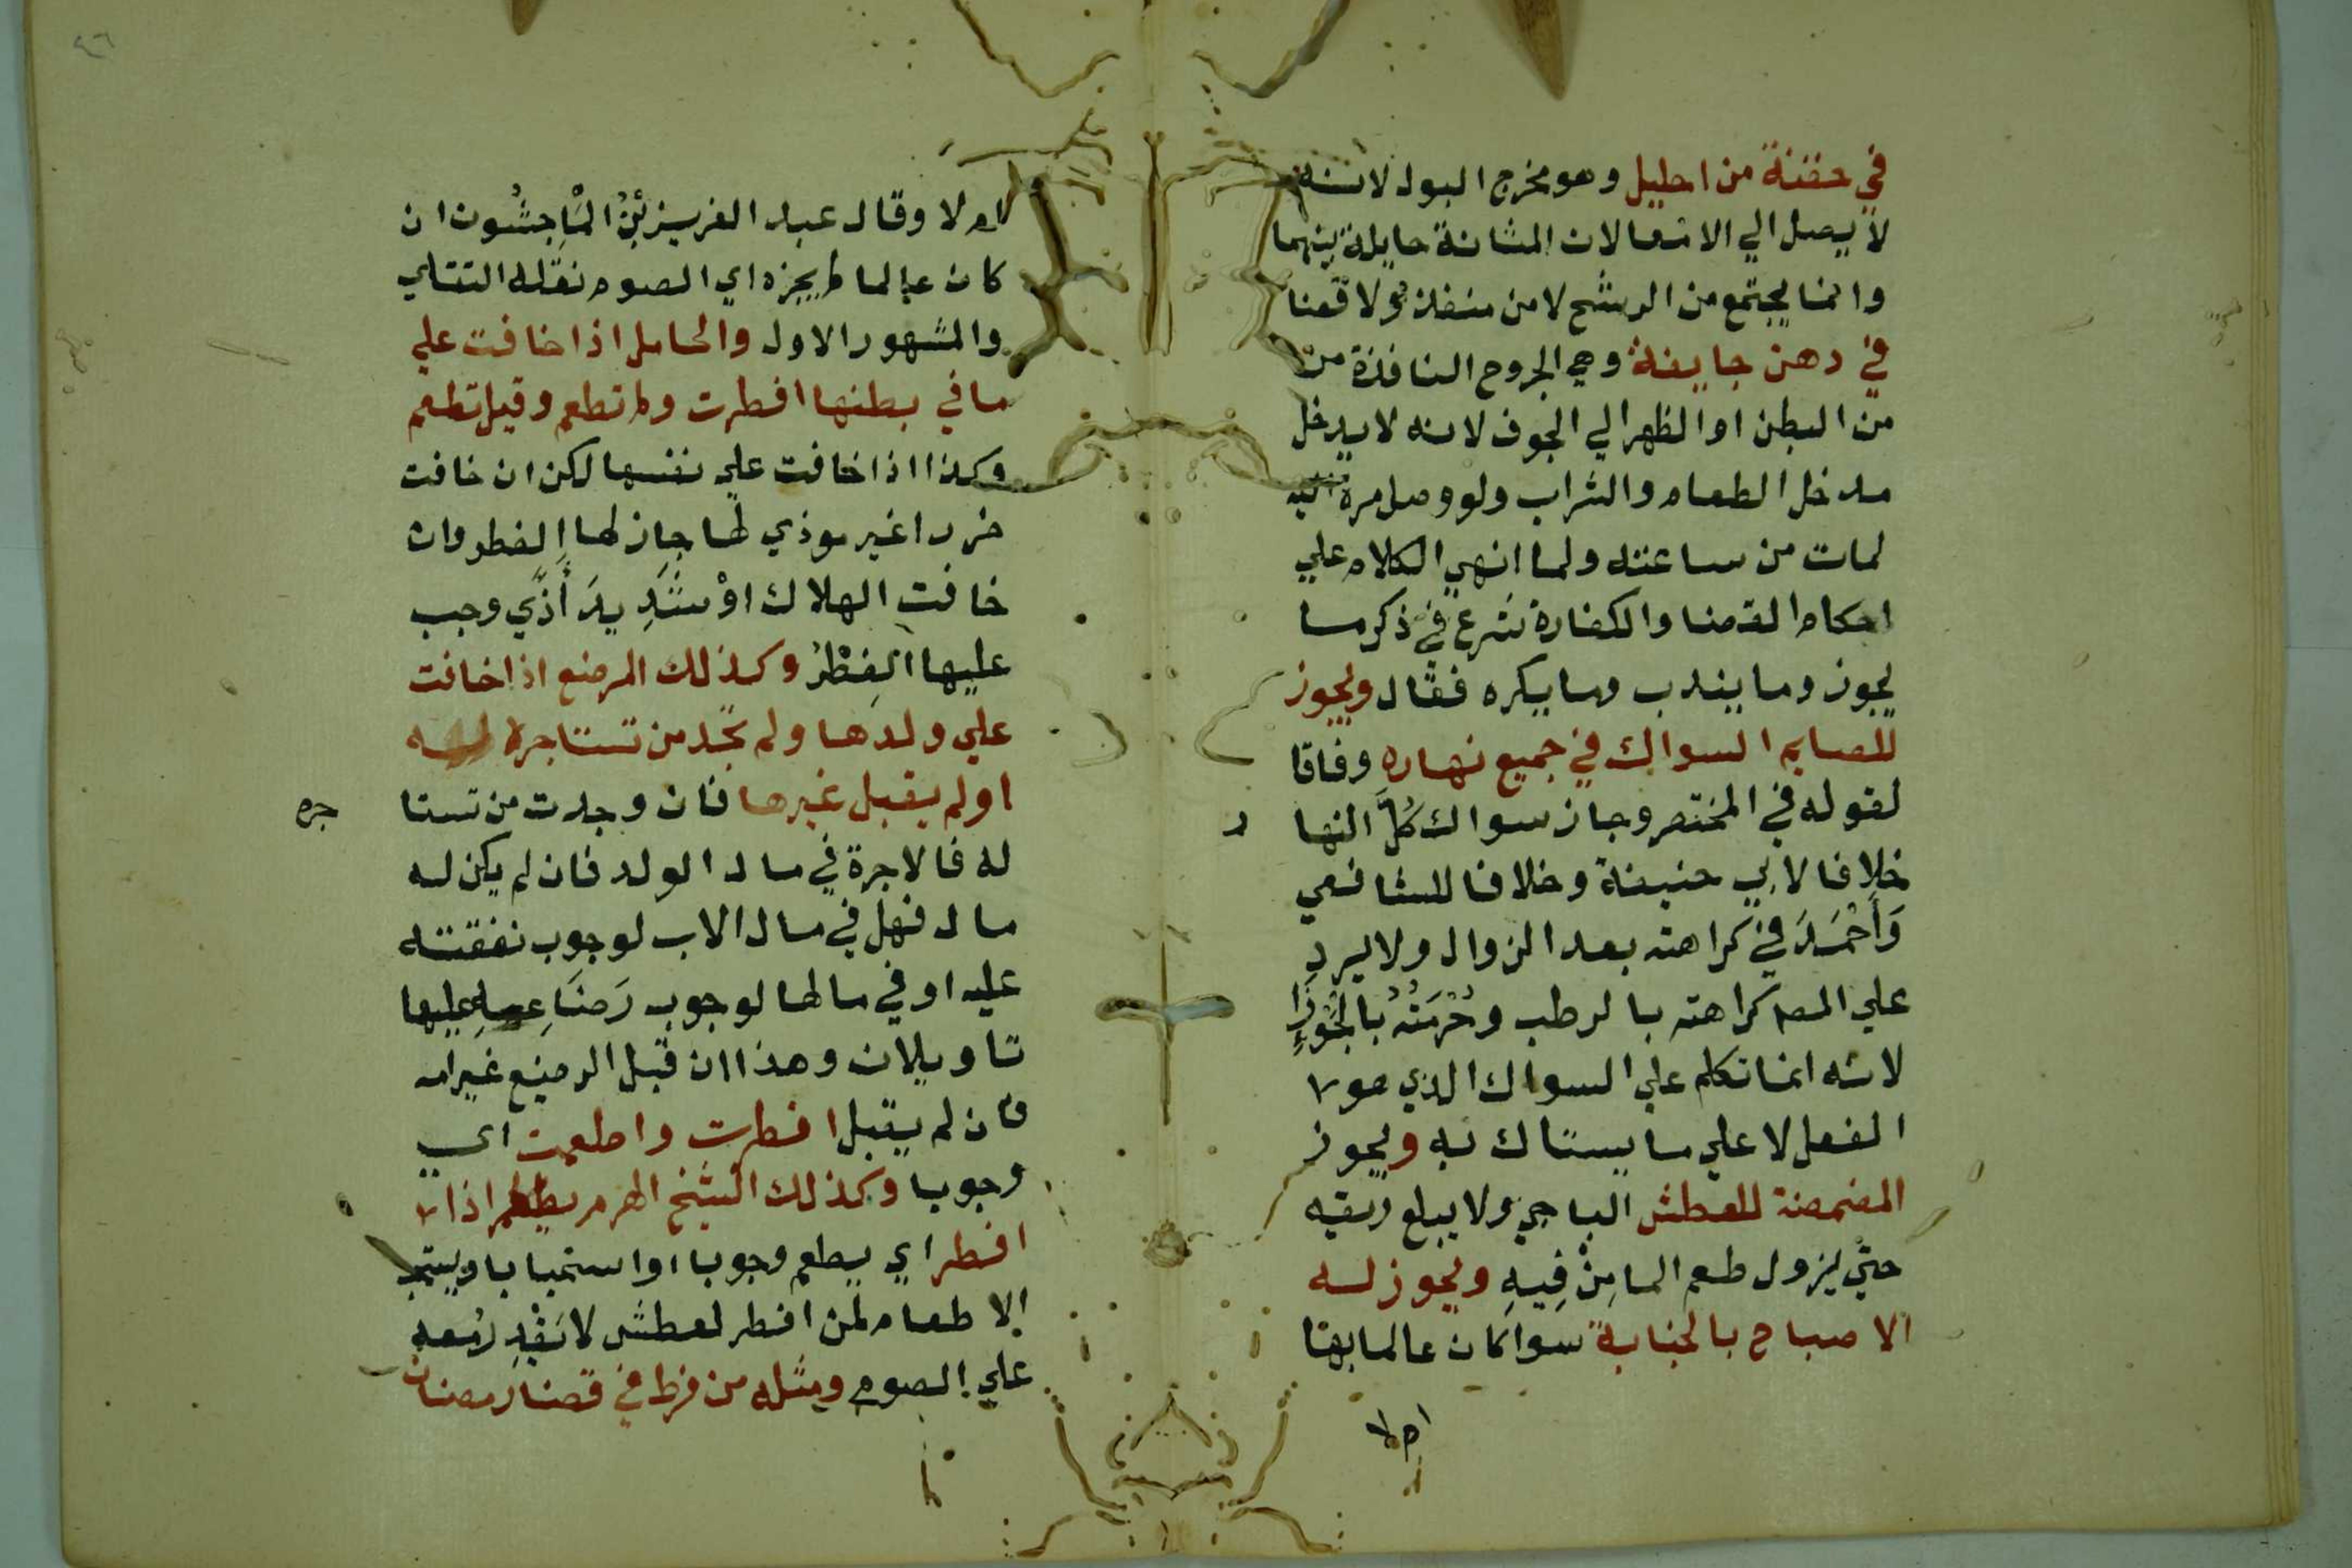 في حقنة من احليل وهو مخرج البول لانه
لا يصل الي الامعا لان المثانة حايلة بينهما
وانما يجتمع من الرشح لا من منفذ ولا قضا
في دهن جايفة وهي الجروح النافذة من
من البطن او الظهر الي الجوف لانه لا يدخل
مدخل الطعام والشراب ولو وصل مرة اليه
لمات من ساعته ولما انهي الكلام علي
احكام القضا والكفارة شرع في ذكر ما
يجوز وما يندب وما يكره فقال ويجوز
للصايم السواك في جميع نهاره وفاقا
لقوله في المختصر وجاز سواك كُلَّ النها
ر
خلافا لابي حنيفة وخلافا للشافعي
وَأَحْمَدَ في كراهته بعد الزوال ولا يرد
علي المصـ كراهته بالرطب وحُرْمَتُهُ بالجَوْزَا
لانه انما تكلم علي السواك الذي هو
الفعل لا علي ما يستاك به ويجوز
المضمضة للعطش الباجي ولا يبلع ريقه
حتي يزول طعم الما مِنْ فِيهِ ويجوز له
الاصباح بالجنابة سوا كان عالما بها
ام لا
ام لا وقال عبد العزيز بْنُ المَاجِشُون ان
كان عالما لم يجزه اي الصوم نقله التتاي
والمشهور الاول والحامل اذا خافت علي
ما في بطنها افطرت ولم تطعم وقيل تطعم
وكذا اذا خافت علي نفسها لكن ان خافت
ضررا غير موذي لها جاز لها الفطر وان
خافت الهلاك اوْ شَدِيدَ أَذًي وجب
عليها الفِطْرُ وكذلك المرضع اذا خافت
علي ولدها ولم تجد من تستاجره له
او لم يقبل غيرها فان وجدت من تستا
جره
له فالاجرة في مال الولد فان لم يكن له
مال فهل في مال الاب لوجوب نفقته
عليه او في مالها لوجوب رَضَاعِهِ عليها
تاويلان وهذا ان قبل الرضيع غير امه
فان لم يقبل افطرت واطعمت اي
وجوبا وكذلك الشيخ الهرم يطعم اذا
افطر اي يطعم وجوبا او استحبابا ويستحب
الاطعام لمن افطر لعطش لا يَقْدِرُ معه
علي الصوم ومثله من فرط في قضا رمضان